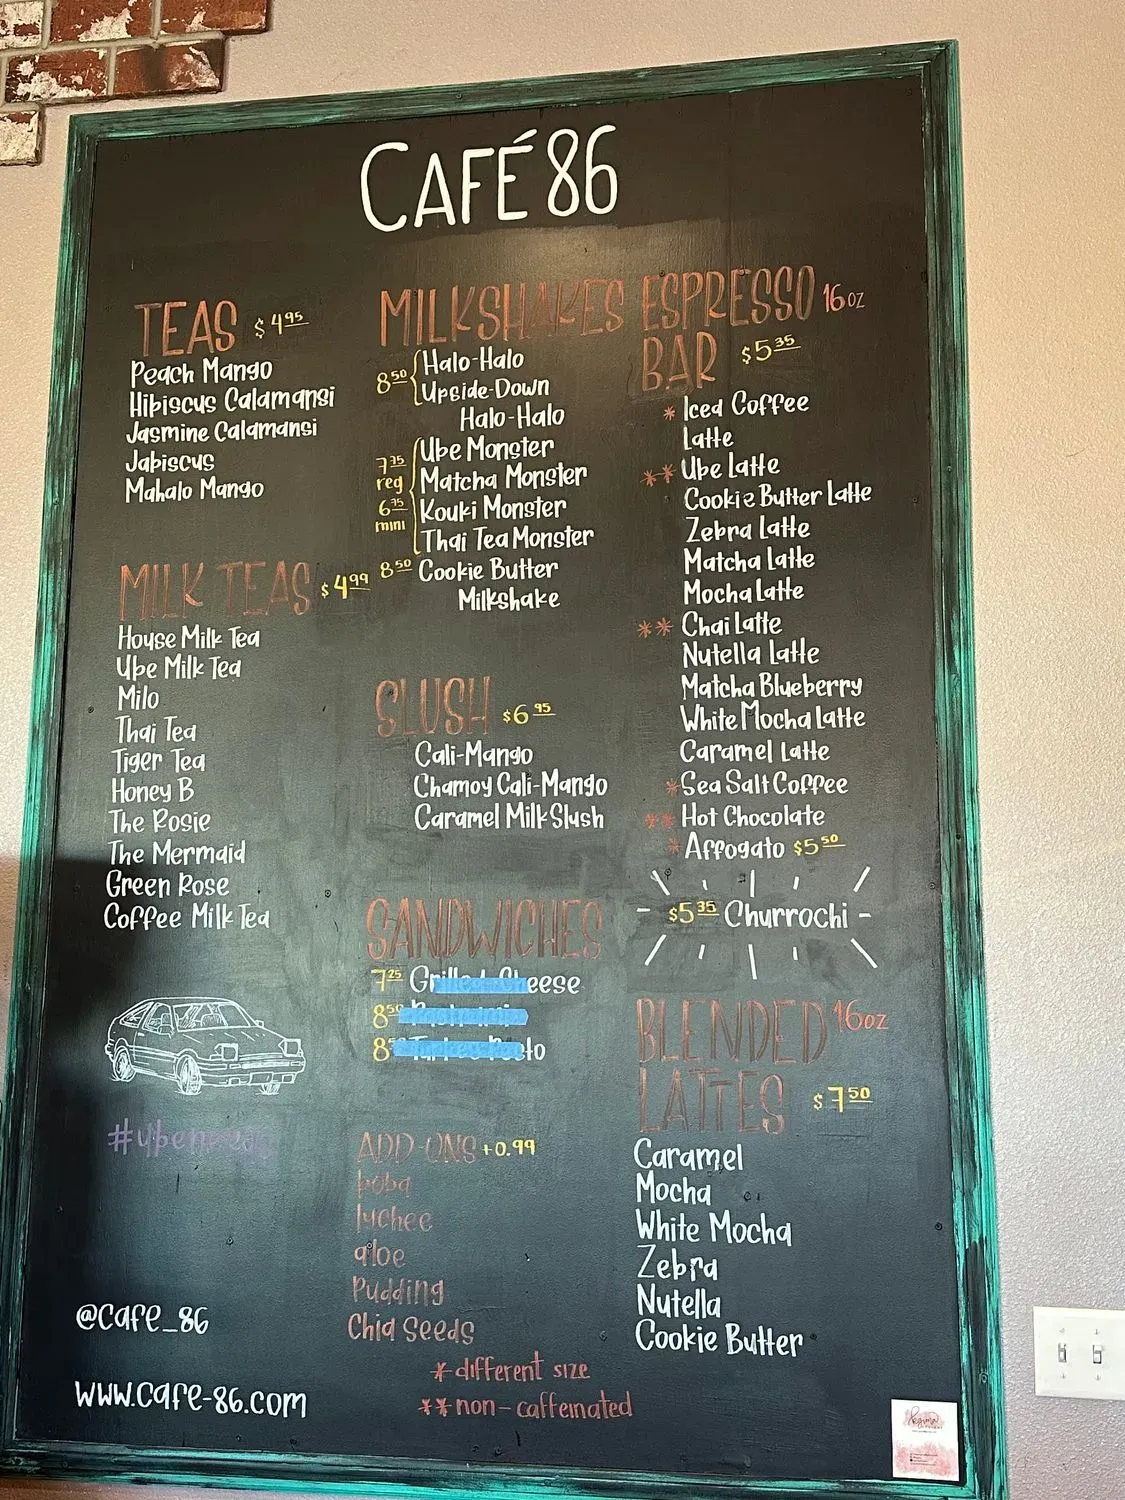 CAFÉ 86
TEAS $4.95
Peach Mango
Hibiscus Calamansi
Jasmine Calamansi
Jabiscus
Mahalo Mango
MILK TEAS $4.99
House Milk Tea
Ube Milk Tea
Milo
Thai Tea
Tiger Tea
Honey B
The Rosie
The Mermaid
Green Rose
Coffee Milk Tea
@cafe_86
www.cafe-86.com
MILKSHAKES
8.50 Halo-Halo
Upside-Down
Halo-Halo
7.75 reg
6.75 mini
Ube Monster
Matcha Monster
Kouki Monster
Thai Tea Monster
8.50 Cookie Butter
Milkshake
SLUSH $6.95
Cali-Mango
Chamoy Cali-Mango
Caramel Milk Slush
SANDWICHES
7.25 Grilled Cheese
ADD-ONS +0.99
boba
lychee
aloe
Pudding
Chia Seeds
* different size
** non-caffeinated
ESPRESSO 16oz
BAR $5.35
* Iced Coffee
Latte
** Ube Latte
Cookie Butter Latte
Zebra Latte
Matcha Latte
Mocha Latte
** Chai Latte
Nutella Latte
Matcha Blueberry
White Mocha Latte
Caramel Latte
* Sea Salt Coffee
** Hot Chocolate
* Affogato $5.50
$5.35 Churrochi
BLENDED 16oz
LATTES $7.50
Caramel
Mocha
White Mocha
Zebra
Nutella
Cookie Butter